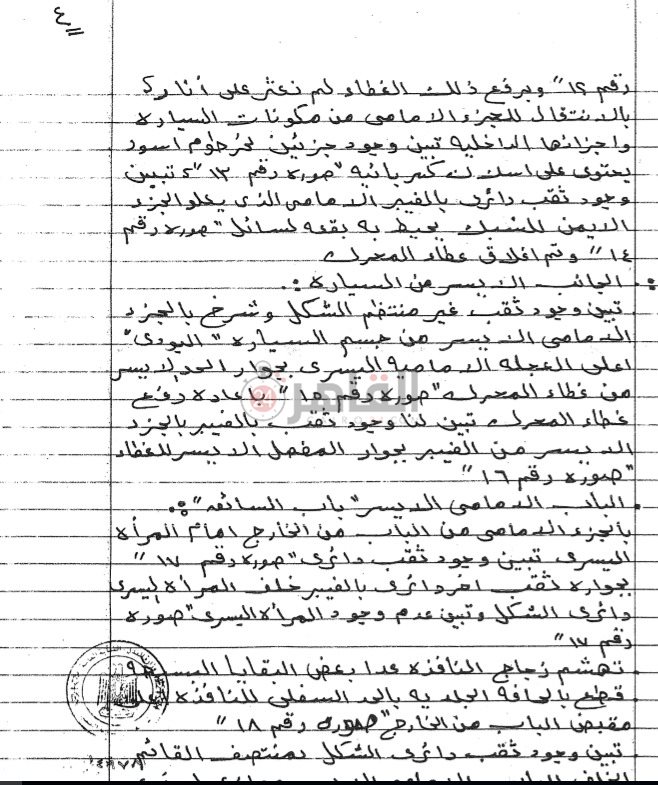 ٤
رقم ١٢" وبرفع ذلك الغطاء لم نعثر على أثار
بالانتقال للجزء الامامى من مكونات السياره
واجزائها الداخليه تبين وجود جزئين لخرطوم اسود
يحتوى على اسلاك كهربائيه "صوره رقم ١٣" تبين
وجود ثقب دائرى بالفيبر الامامى الذى يعلو الجزء
الايمن للشبك يحيط به بقعه لسائل "صوره رقم
١٤" وتم اغلاق غطاء المحرك
. الجانب الايسر من السياره :.
. تبين وجود ثقب غير منتظم الشكل وشرخ بالجزء
الامامى الايسر من جسم السياره "البودى"
اعلى العجله الاماميه اليسرى بجوار الحد الايسر
من غطاء المحرك "صوره رقم ١٥" باعاده رفع
غطاء المحرك تبين لنا وجود ثقب بالفيبر بالجزء
الايسر من الفيبر بجوار المفصل الايسر للغطاء
"صوره رقم ١٦"
. الباب الامامى الايسر "باب السائق" :.
بالجزء الامامى من الباب من الخارج امام المرأة
اليسرى تبين وجود ثقب دائرى "صوره رقم ١٧"
بجواره ثقب اخر دائرى بالفيبر خلف المرأة اليسرى
دائرى الشكل وتبين عدم وجود المرأة اليسرى "صوره
رقم ١٧"
. تهشم زجاج النافذه عدا بعض البقايا
قطع بالحافه الجلديه بالحد السفلى للنافذه اعلى
مقبض الباب من الخارج "صوره رقم ١٨"
. تبين وجود ثقب دائرى الشكل بمنتصف القائم
القاهرة
24